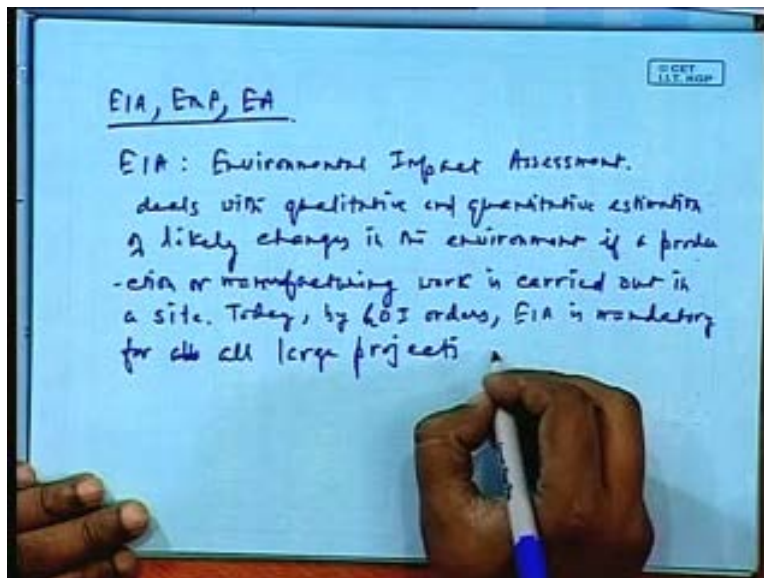 © CET
I.I.T. KGP
EIA, EMP, EA
EIA : Environmental Impact Assessment.
deals with qualitative and quantitative estimation
of likely changes in the environment if a produ
-ction or manufacturing work is carried out in
a site. Today, by GOI orders, EIA is mandatory
for all large projects